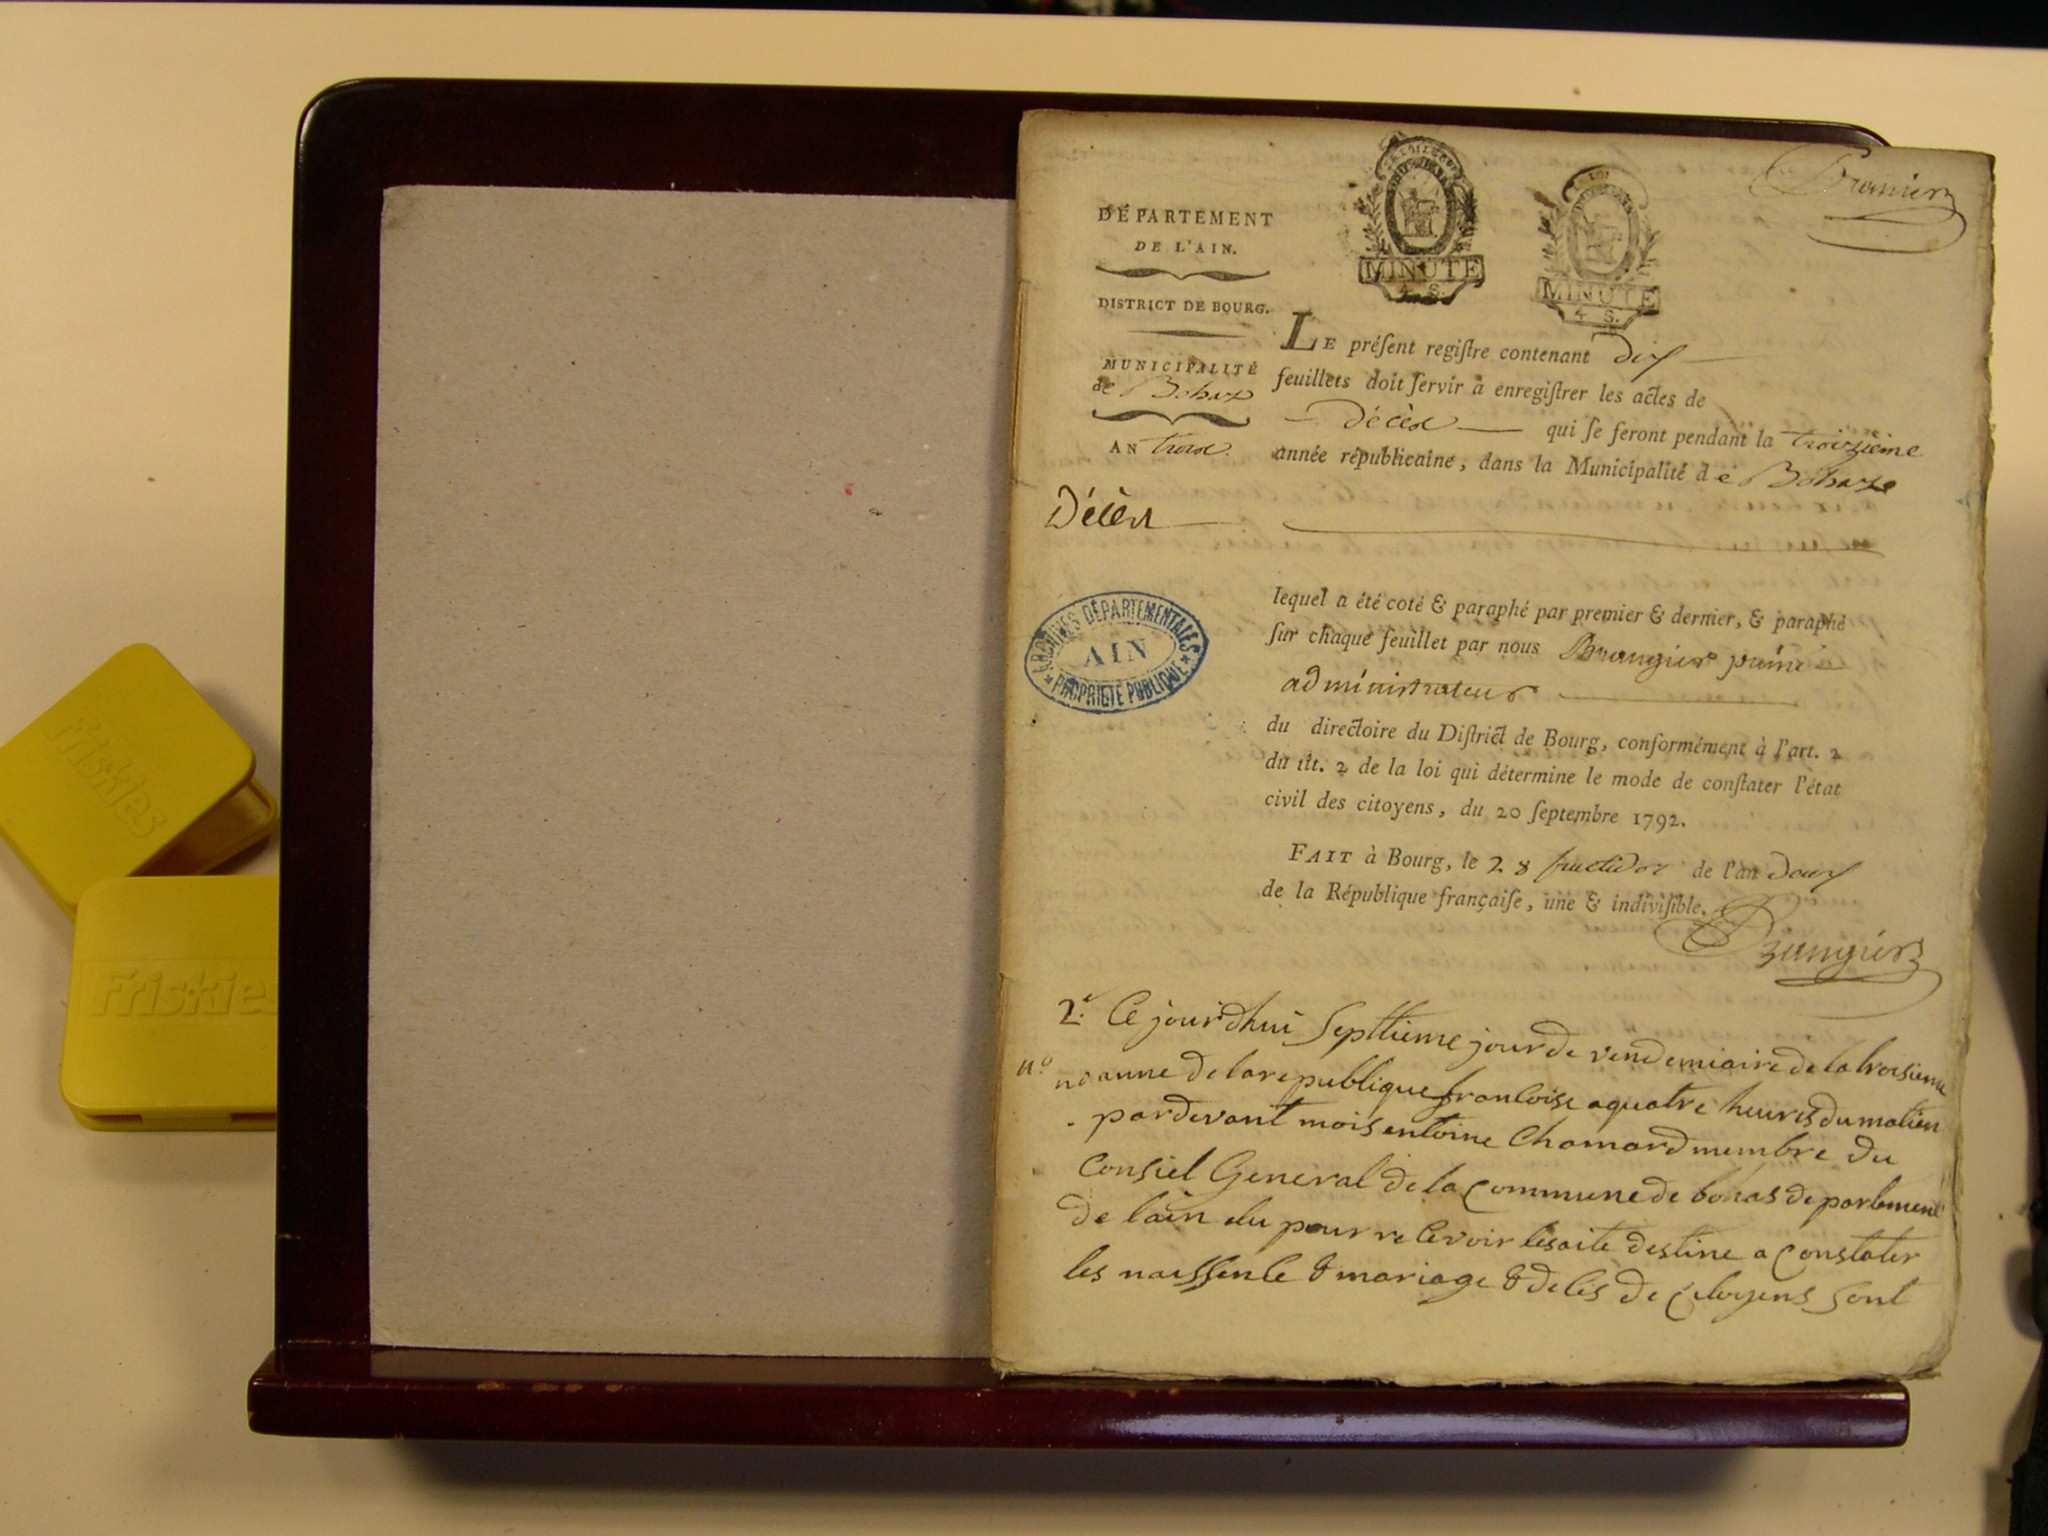 Brangier
DÉPARTEMENT
DE L'AIN.
DISTRICT DE BOURG.
MUNICIPALITÉ
de Bohas
AN trois.
MINUTE
4 S.
LA LOI
MINUTE
4 S.
LE préſent regiſtre contenant dix
feuillets doit ſervir à enregiſtrer les actes de
décès qui ſe feront pendant la troizième
année républicaine, dans la Municipalité de Bohas
Décès
ARCHIVES DÉPARTEMENTALES
AIN
PROPRIÉTÉ PUBLIQUE
lequel a été coté & paraphé par premier & dernier, & paraphé
ſur chaque feuillet par nous Brangier
administrateur
du directoire du Diſtrict de Bourg, conformément à l'art. 2
du tit. 2 de la loi qui détermine le mode de conſtater l'état
civil des citoyens, du 20 ſeptembre 1792.
FAIT à Bourg, le 28 fructidor de l'an deux
de la République françaiſe, une & indiviſible.
Brangier
2e. Ce jourdhui Septtieme jour de vendemiaire de la troisieme
n.o anne de la republique francoise a quatre heures du matien
par devant mois entoine Chamard membre du
Consiel General de la Commune de bohas departement
de lain elu pour recevoir les aite destine a Constater
les naissence & mariage & deces de Citoyens sont
Friskies
Friskies